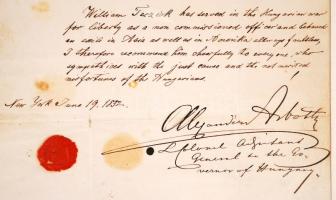 William has served in the Hungarian war
for liberty as a non commissioned officer and behaved
as well as in America always
I therefore recommend him cheerfully to everyone who
sympathizes with the just cause and the
misfortune of the Hungarians.
New York June 19. 1852.
Alexander Asboth
L Colonel Adjutant
General to the Go-
vernor of Hungary.